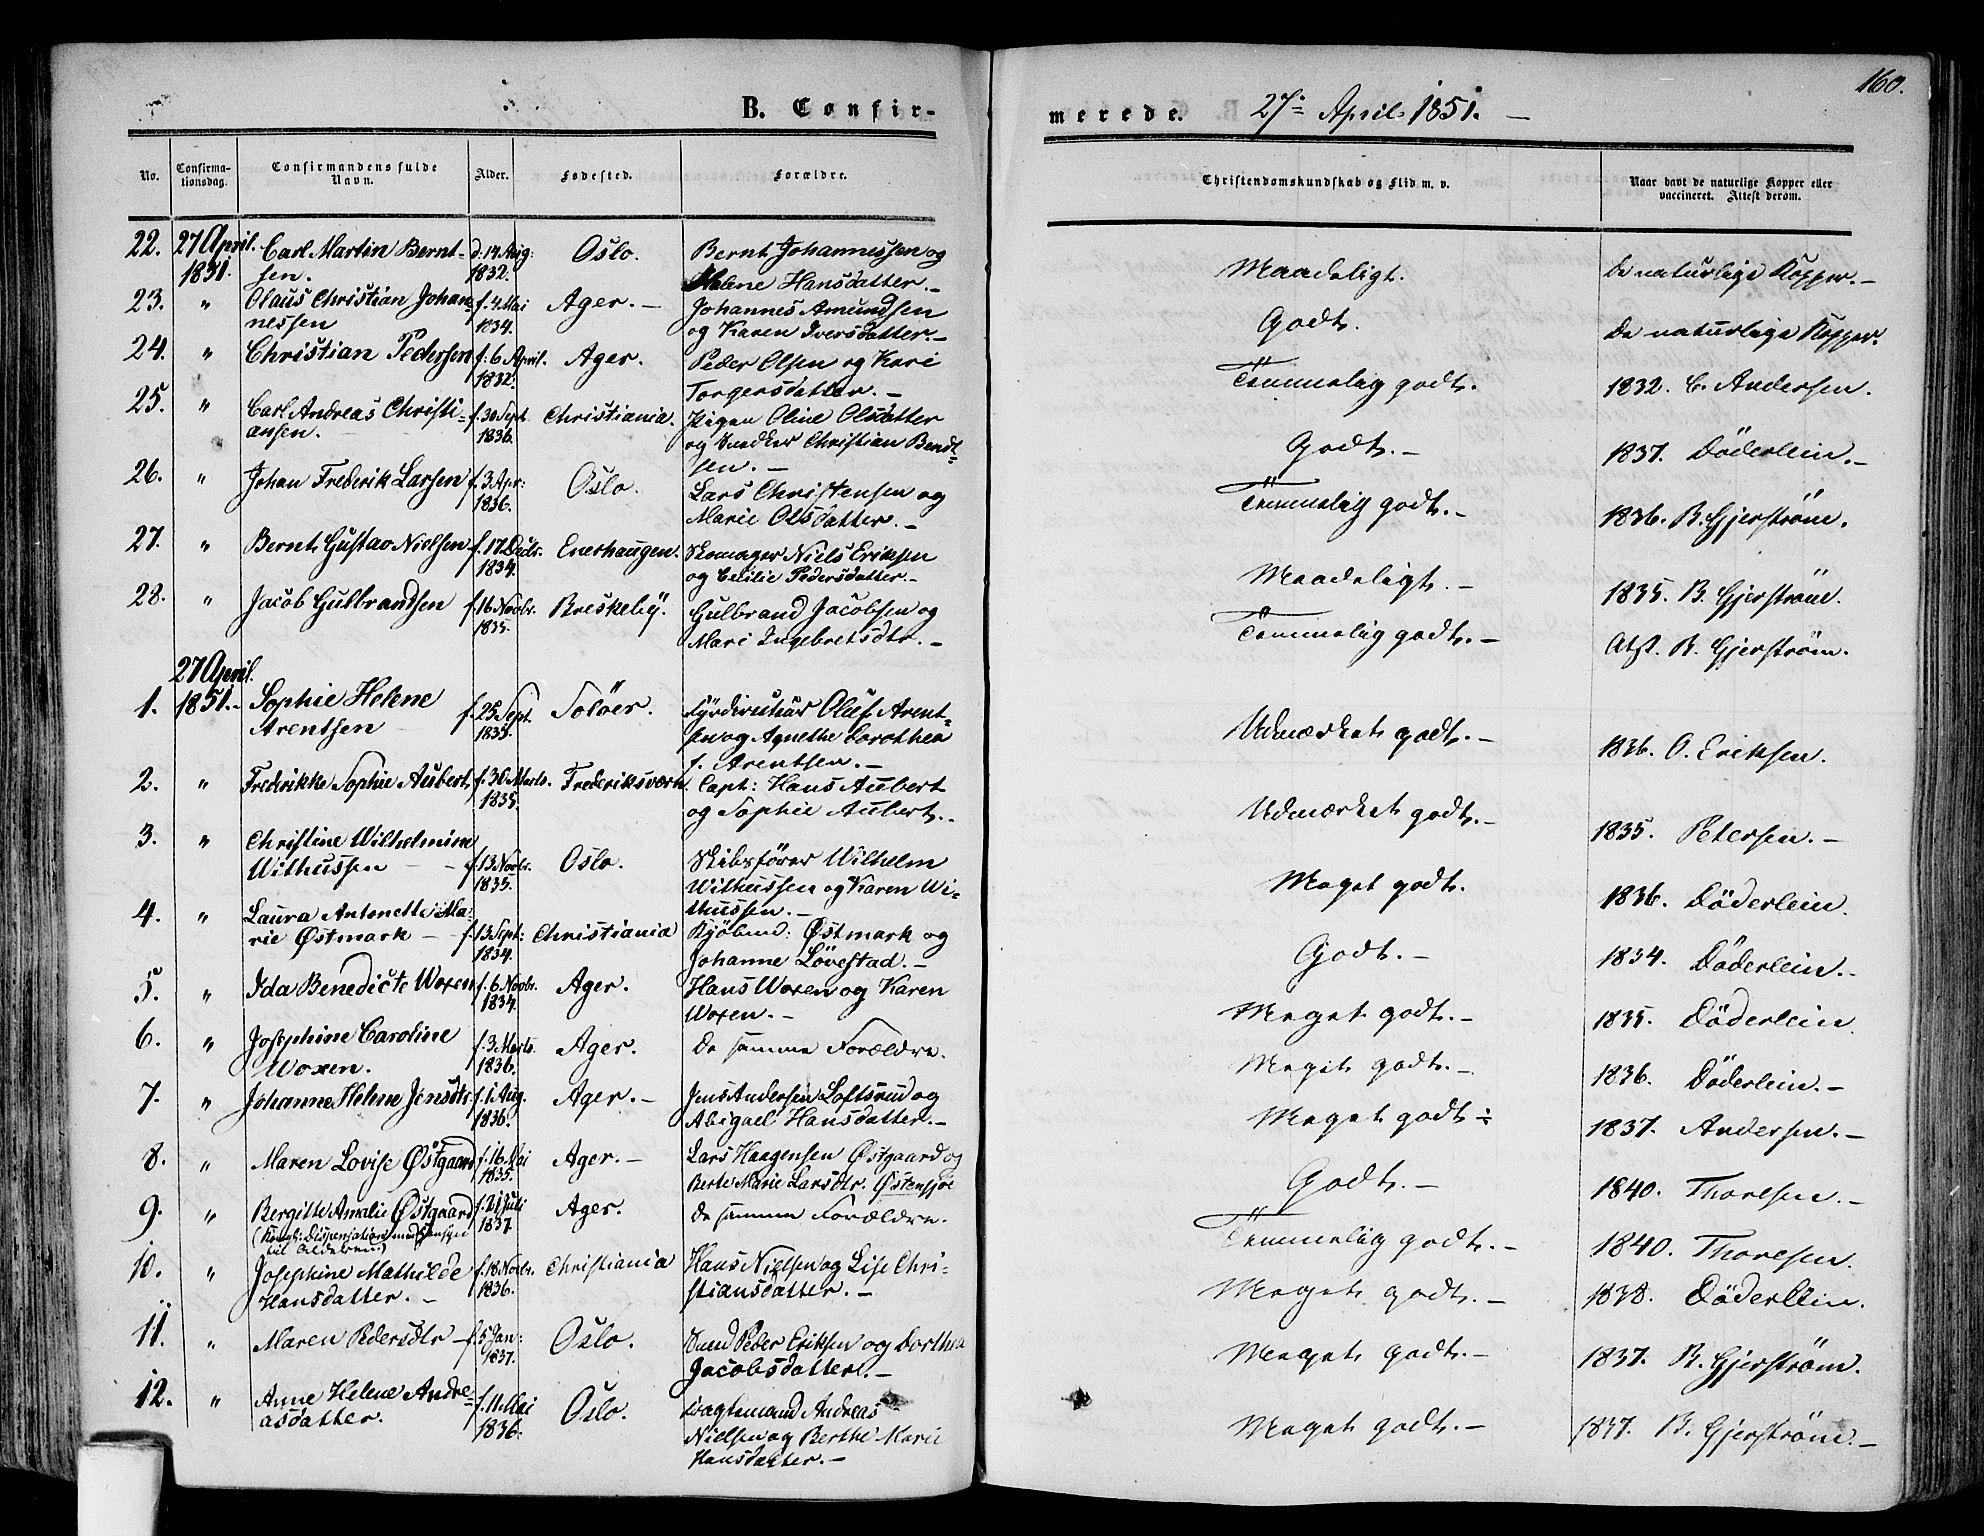 160.
B. Confir-
merede. 27de April 1851. —
No.
Confirma-
tionsdag.
Confirmandens fulde
Navn.
Alder.
Fødested.
Forældre.
Christendomskundskab og Flid m. v.
Naar havt de naturlige Kopper eller
vaccineret. Attest derom.
22. 27 April. Carl Martin Bernt- d: 14 Aug: Oslo. Bernt Johannessen og Maadeligt. De naturlige Kopper. —
1851. sen. 1832. Helene Hansdatter. —
23. " Olaus Christian Johan- f. 4 Mai Ager. — Johannes Amundsen Godt. De naturlige Kopper.
nessen 1834. og Karen Iversdatter. —
24. " Christian Pedersen f. 6 April. Ager. Peder Olsen og Kari Temmelig godt. 1832. C. Andersen.
1832. Torgersdatter. —
25. " Carl Andreas Christi- f. 30 Sept. Christiania. Pigen Oline Olsdatter Godt. — 1837. Döderlein. —
ansen. 1836. og Snedker Christian Bendt-
sen. —
26. " Johan Frederik Larsen f. 3 Apr: Oslo. Lars Christensen og Temmelig godt. — 1836. B. Gjerström.
1836. Marie Olsdatter. —
27. " Bernt Gustav Nielsen f. 17 Decbr. Enerhaugen. Skomager Niels Eriksen Maadeligt. — 1835. B. Gjerström.
1834. og Cecilie Pedersdatter. —
28. " Jacob Gulbrandsen f. 16 Novbr. Breskeby. Gulbrand Jacobsen og Temmelig godt. — Atst. B. Gjerström.
1835. Mari Ingebretsdtr. —
27 April.
1. 1851. Sophie Helene f. 25 Sept. Solöer. Oluf Arent- Udmærket godt. — 1836. O. Eriksen.
Arentsen 1835. sen og Agnethe Dorothea
f. Arentsen. —
2. " Frederikke Sophie Aubert f. 30 Marts. Frederiksværn. Capt: Hans Aubert Udmærket godt. — 1835. Petersen. —
1835. og Sophie Aubert. —
3. " Christine Wilhelmine
Withussen — f. 13 Novbr. Oslo. Skibsfører Wilhelm Meget godt. 1836. Döderlein.
1835. Withussen og Karen Wi-
thussen. —
4. " Laura Antonette Ma-
rie Østmark — f. 13 Sept: Christiania Kjöbmd: Østmark og Godt. — 1834. Döderlein. —
1834. Johanne Lövestad. —
5. " Ida Benedicte Woxen f. 6 Novbr. Ager. Hans Woxen og Karen Meget godt. — 1835. Döderlein.
1834. Woxen. —
6. " Josephine Caroline f. 3 Marts. Ager. De samme Forældre. Meget godt. — 1836. Döderlein. —
Woxen. 1836.
7. " Johanne Helene Jensdtr f. 1 Aug. Ager. — Jens Andersen Loftsrud og Meget godt ÷ 1837. Andersen. —
1836. Abigael Hansdatter. —
8. " Maren Lovise Østgaard f. 16 Mai Ager. — Lars Haagensen Østgaard og Godt. — 1840. Thoresen. —
1835. Berte Marie Larsdtr. Østensjöe
9. " Bergitte Amalie Østgaard f. 21 Juli Ager. De samme Forældre. Temmelig godt. — 1840. Thoresen.
(Kongl: Dispensation med Hensyn 1837.
til Alderen)
10. " Josephine Mathilde f. 18 Novbr. Christiania Hans Nielsen og Lise Chri- Meget godt. — 1838. Döderlein.
Hansdatter. — 1836. stiansdatter. —
11. " Maren Pedersdtr — f. 5 Jan: Oslo. Peder Eriksen og Dorthea Meget godt. — 1837. B. Gjerström.
1837. Jacobsdatter. —
12. " Anne Helene Andre- f. 11 Mai Oslo. Vægtermand Andreas Meget godt. — 1837. B. Gjerström. —
asdatter. 1836. Nielsen og Berthe Marie
Hansdatter. —